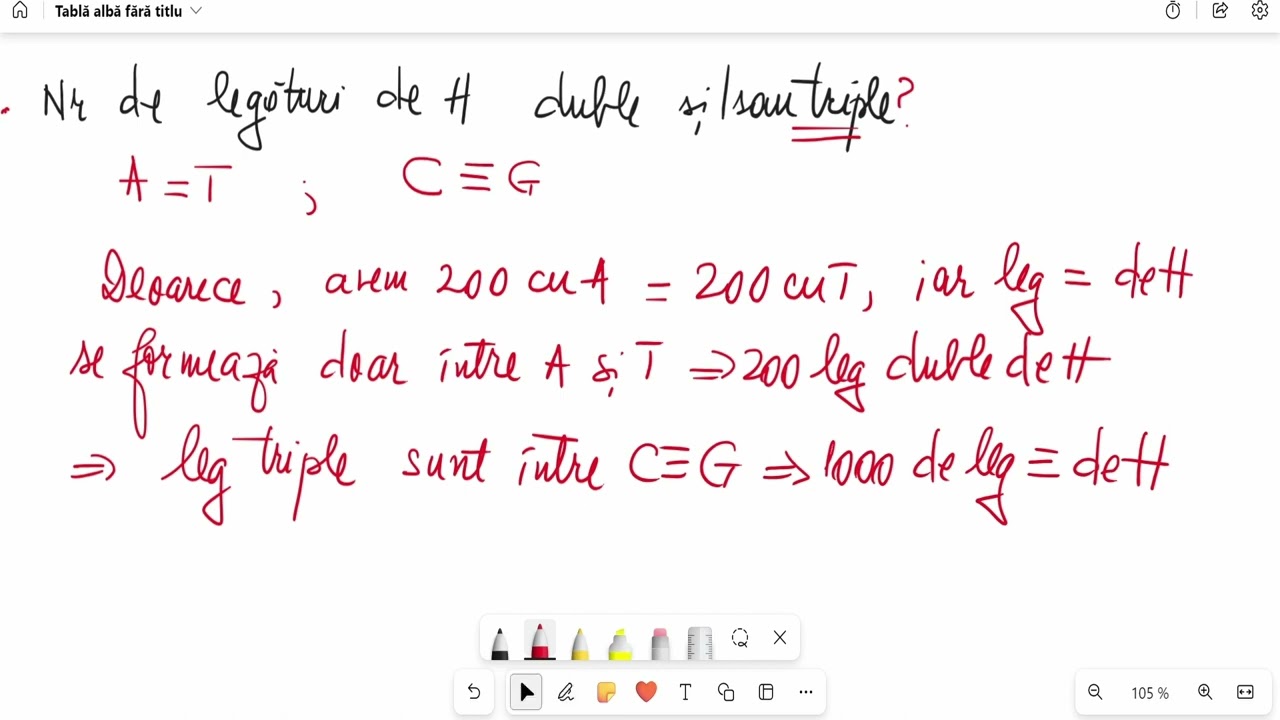 Tablă albă fără titlu
Nr de legături de H duble și/sau triple?
A = T ; C ≡ G
Deoarece, avem 200 cu A = 200 cu T, iar leg = de H
se formează doar între A și T ⇒ 200 leg duble de H
⇒ leg triple sunt între C≡G ⇒ 1000 de leg ≡ de H
T
105 %